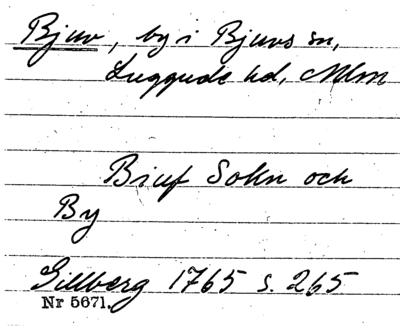 Bjuv, by i Bjuvs sn,
Luggude hd, Mlm
Biuf Sokn och
By
Gillberg 1765 s. 265
Nr 5671.